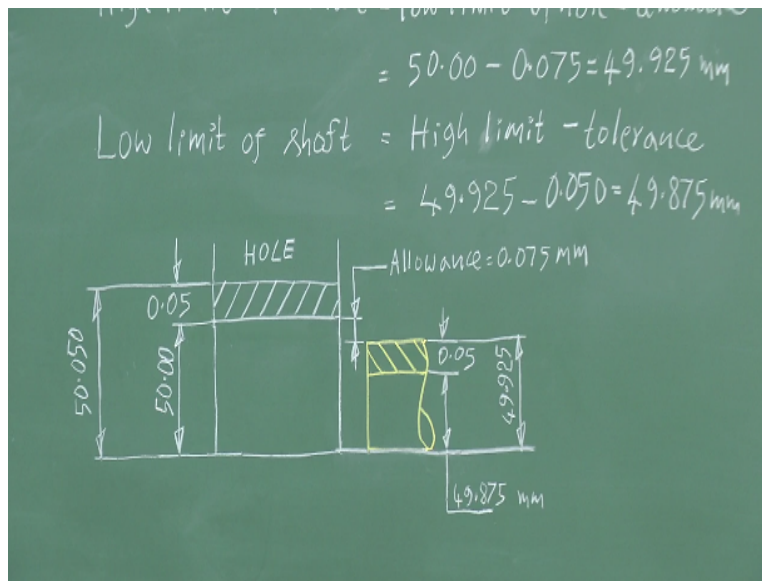 = 50.00 - 0.075 = 49.925 mm
Low limit of shaft = High limit - tolerance
= 49.925 - 0.050 = 49.875 mm
HOLE
Allowance = 0.075 mm
0.05
50.050
50.00
0.05
49.925
49.875 mm